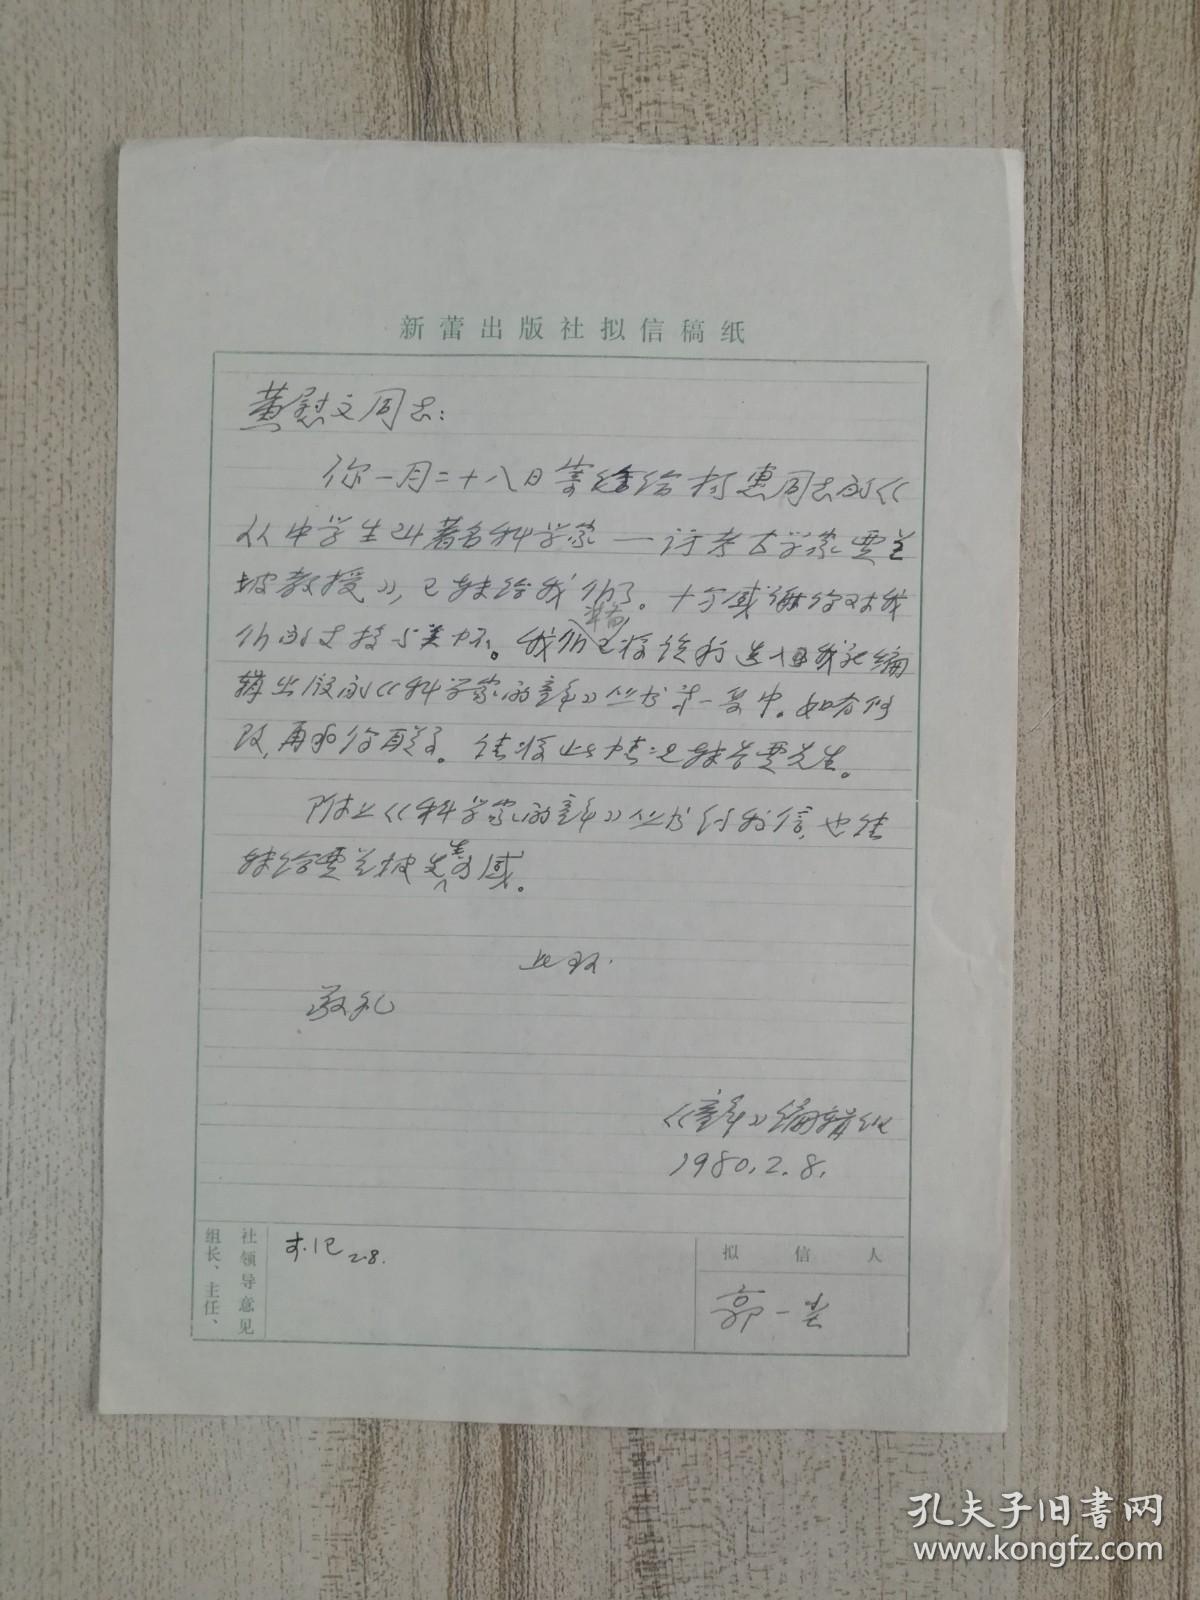 新蕾出版社拟信稿纸
黄慰文同志：
你一月二十八日寄给柯惠同志的《
从中学生到著名科学家——访考古学家贾兰
坡教授》，已转给我们了。十分感谢你对我
们的支持与关怀。我们准备将该稿选入由我社编
辑出版的《科学家的童年》丛书第一集中。如有修
改，再和你联系。请将此情况转告贾先生。
附上《科学家的童年》丛书约稿信，也请
转给贾兰坡先生为感。
此致
敬礼
《童年》编辑组
1980.2.8.
社领导意见
组长、主任、
2.8.
拟信人
郭一尘
孔夫子旧书网
www.kongfz.com